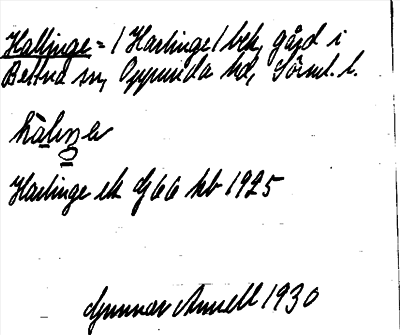 Hallinge = (Harlinge) beb, gård i
Bettna sn, Oppunda hd, Sörml. l.
Harlinge ek bl 66 kb 1925
Gunnar Ansell 1930